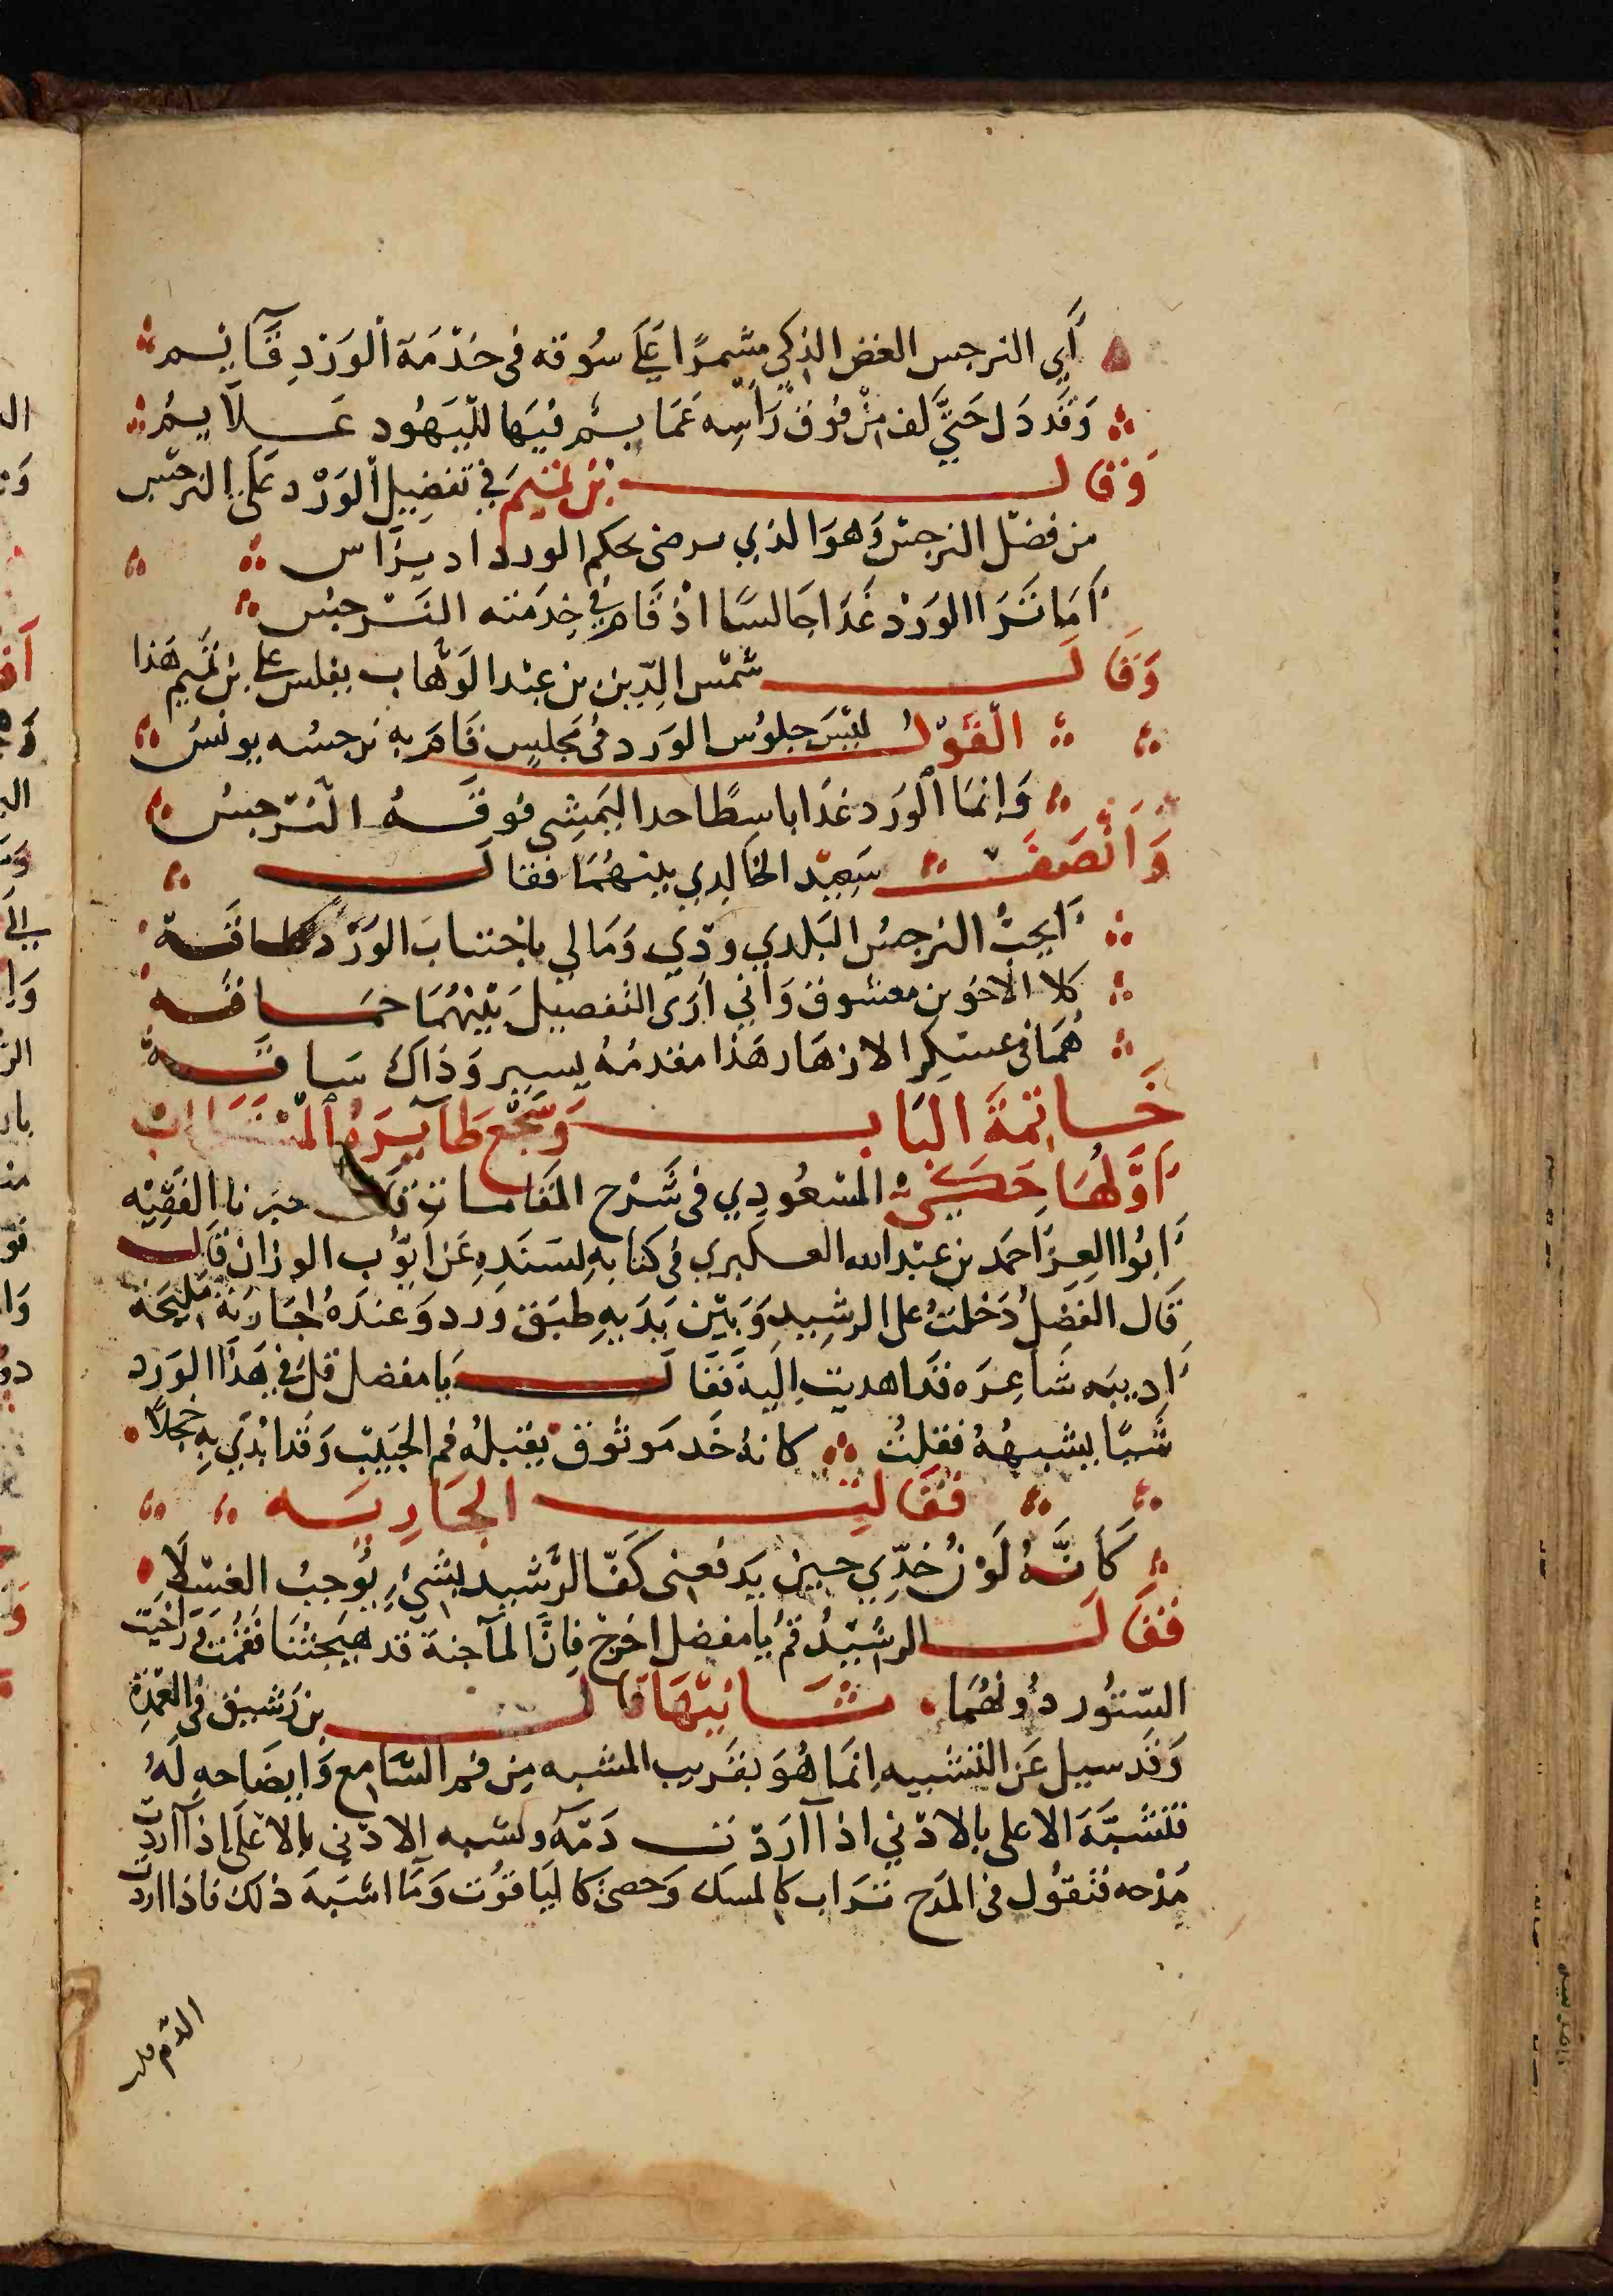 أَي النرجس الغض الذكي مشمرًا على سُوقه فى خدْمَة الوَرْدِ قَآئِم
وَقَد دَل حَتي لف مِنْ فوُق رَأسِه عَمَايم فيَها لليَهُود عَلَايمُ
وَقال بْن تميم في تفضِيل الوَرْد علَى النرجس
من فضل النرجس وَهوَ الذي يرضى بحكم الورد اد يرَاس
أمَا تَرَا الوَرْد غَدَا جَالسًا اذْ قَام في خِدمَته النَرجسُ
وَقَال شمْس الدّين بن عبْد الوَهّاب يفلس على بن تميم هَذا
القَوْل ليْسَ جلوُس الورد فى مَجلسٍ قَامَ به نرجسُه يونسُ
وَإنمَا الوَرد غدَا باسِطًا خدا ليَمشِى فوقَهُ النرْجسُ
وَأنْصَفَ سَعِيْد الخَالدِي بينهُمَا فقال
أيحبُّ النرجسُ البَلدي ودّي وَمَالي باجْتنابَ الوَرْد طَاقَة
كلا الأخوين معشوق وَأني أرَى التفصيلَ بَيْنهُمَا حمَاقَه
هُمَا فى عسْكر الازهَار هَذا مقدمُهُ يسير وَذاكَ سَاقَه
خَاتِمَةَ البَاب وَسَجْع طَآيرَهُ المسْتَطَاب
أوَّلُهَا حَكَى المسْعُودِي فى شَرْح المقَامات قَال حبَرنا الفَقِيْه
أبُوا العِزّ احمَد بن عبْد الله العسكبري فى كتابهِ لسَنَدِهِ عَن أيّوُب الوزان قَال
قَال الفَضْل دَخلتُ على الرشِيد وَبَيْن يَدَيهِ طبَق ورد وَعندَهُ اجَارَيَة مَليحَة
أديبَه شَاعِرَه قدَ اهديت اِليه فَقَال يَا مفضل قل في هَذا الوَرد
شَيًا يشبهُهُ فقلتُ كانهُ خَد مَوثوُق يقبلهُ فم الحَبيبْ وَقَد ابْدَي بهِ خجلاً
فَقَالتْ الجَاريَه
كَأنَّهُ لَوْنُ خَدِّي حِين يَدفعنى كَفّ الرَّشيد بشيءٍ يُوجبُ الغسَلَا
فَقَال الرشيْدُ قُم يا مفضل اخرج فَانَّ المآجنة قد هيَجتْنَا فَقُمْت وَارْخيَت
السّتُور دُونهُمَا ثَانيْهَا قَال بن رَشيق فى العُمْدَة
وَقَد سيل عَن التشبيه اِنمَا هُوَ بقَريب المشبه مِن فهم السَّامع وَايضَاحهِ لَهُ
فَتشبَّهَ الاعلى بالادْني اذا آرَدْت دَمَّهُ ولشبه الادْني بالاعْلَى اذا آردت
مَدْحه فتَقوُل فى المَدْح تَرَاب كالمسَك وَحصىً كاليَاقوُت وَمَا اشبَهَ ذلك فاذا اردت
الذم قلت